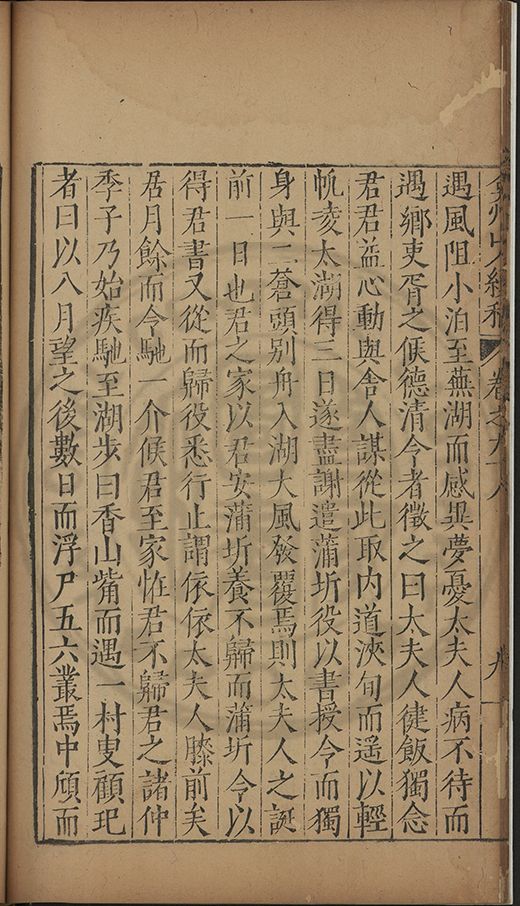 弇州山人續稿 卷之九十八 九
遇風阻小泊至蕪湖而感異夢憂太夫人病不待而
遇鄉吏胥之候德清令者徵之曰太夫人健飯獨念
君君益心動與舍人謀從此取内道浹旬而遥以輕
帆凌太湖得三日遂盡謝遣蒲圻役以書授令而獨
身與二蒼頭别舟入湖大風發覆焉則太夫人之誕
前一日也君之家以君安蒲圻養不歸而蒲圻令以
得君書又從而歸役悉行止謂依依太夫人膝前矣
居月餘而令馳一介候君至家恠君不歸君之諸仲
季子乃始疾馳至湖步曰香山觜而遇一村叟顧玘
者曰以八月望之後數日而浮尸五六叢焉中頎而